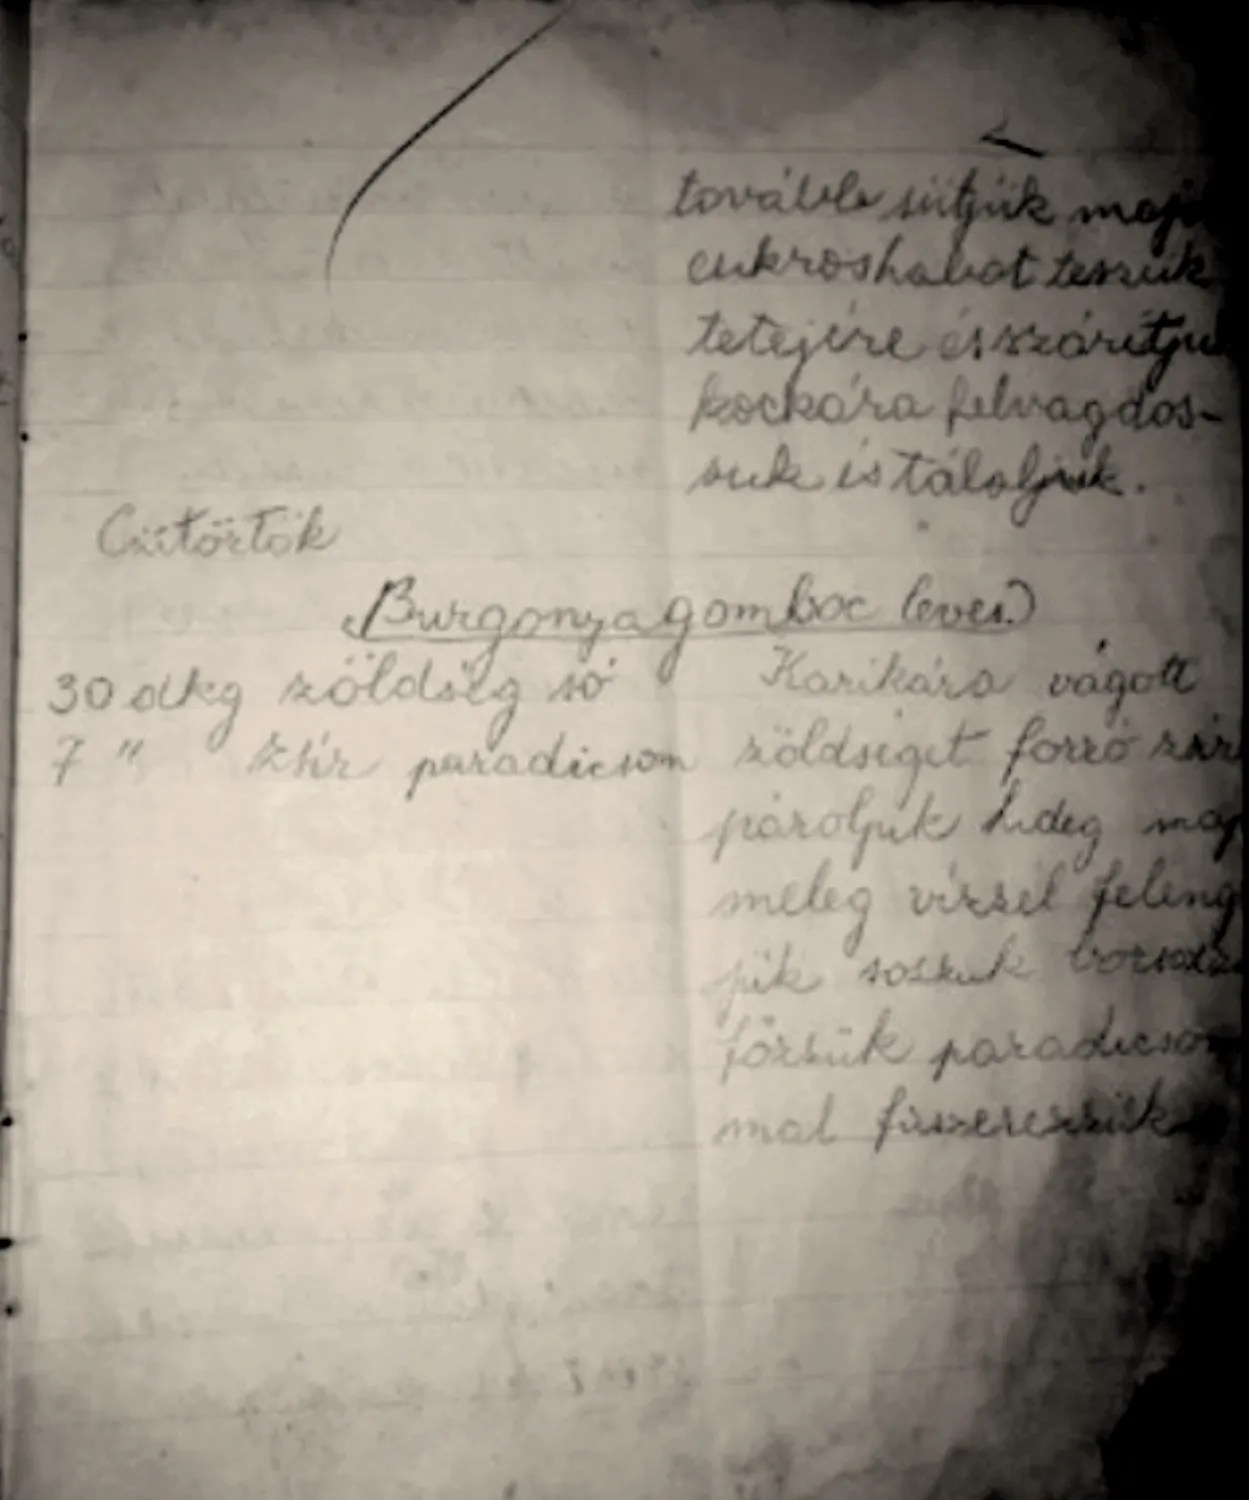 tovább sütjük majd
cukroshabot teszük
tetejére és szárítju
kockára felvagdos-
suk és táloljuk.
Csütörtök
Burgonyagomboc leves.)
30 dkg zöldség só Karikára vágott
7 " zsír paradicsom zöldséget forró zsír
pároljuk hideg maj
meleg vízzel feleng
jük sózzuk borsozz
főzzük paradicsom
mal fűszerezzük